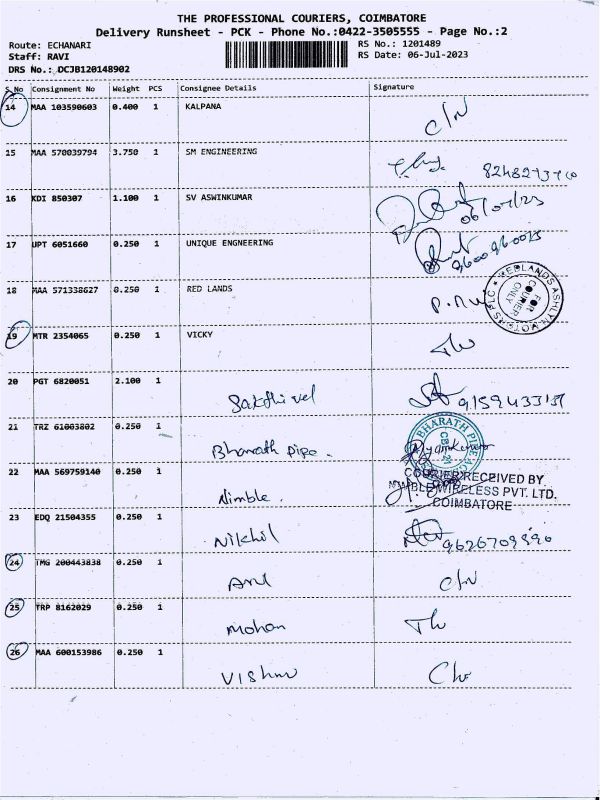 THE PROFESSIONAL COURIERS, COIMBATORE
Delivery Runsheet - PCK - Phone No.:0422-3505555 - Page No.:2
Route: ECHANARI RS No.: 1201489
Staff: RAVI RS Date: 06-Jul-2023
DRS No.: DCJB120148902
S.No Consignment No Weight PCS Consignee Details Signature
14 MAA 103590603 0.400 1 KALPANA C/N
15 MAA 570039794 3.750 1 SM ENGINEERING
16 KDI 850307 1.100 1 SV ASWINKUMAR 06/07/23
17 UPT 6051660 0.250 1 UNIQUE ENGNEERING 9600960025
18 MAA 571338627 0.250 1 RED LANDS
REDLANDS ASHLYN MOTORS PLC
FOR COURIER ONLY
19 MTR 2354065 0.250 1 VICKY
20 PGT 6820051 2.100 1 Sakthi vel
21 TRZ 61003802 0.250 1 Bharath pipe.
BHARATH PIPE
22 MAA 569759140 0.250 1 Nimble.
COURIER RECEIVED BY
NIMBLE WIRELESS PVT. LTD.
COIMBATORE
23 EDQ 21504355 0.250 1 Nikhil
24 TMG 200443838 0.250 1 Arul C/N
25 TRP 8162029 0.250 1 Mohan
26 MAA 600153986 0.250 1 Vishnu